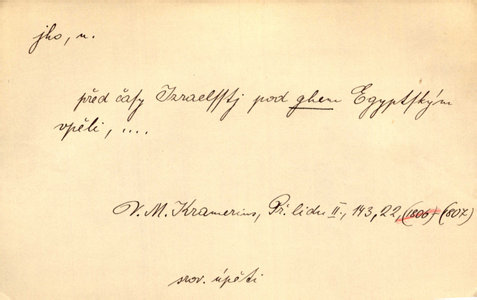 jho, n.
před časy Izraelsstj pod ghem Egyptským
vpěli, ....
V. M. Kramerius, Př. lidu II., 143, 22, (1806) (1807)
srov. úpěti